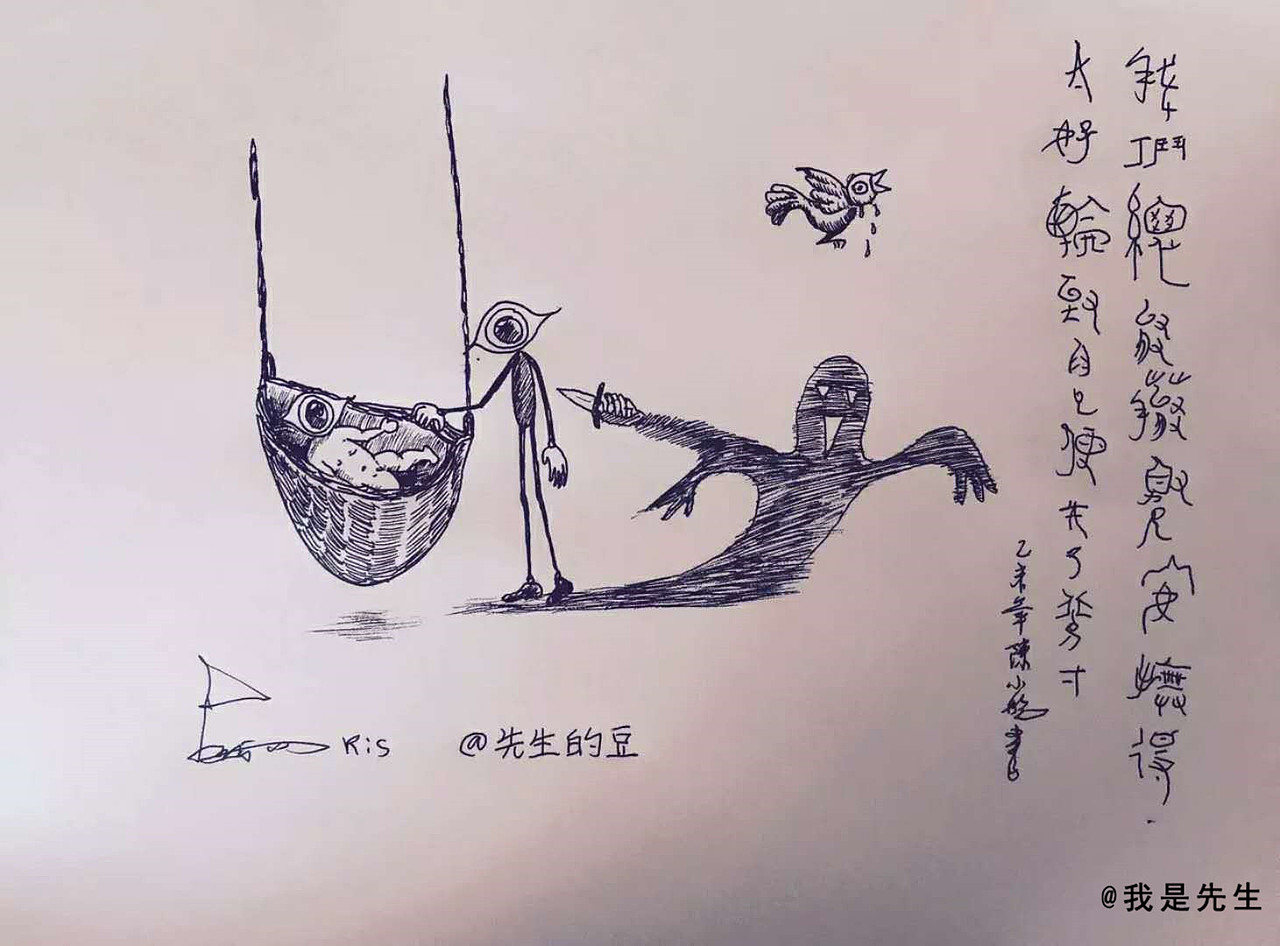 我們總安得
太好輪到自己便失了寸
乙未年陳小書
Ris @先生的豆
@我是先生